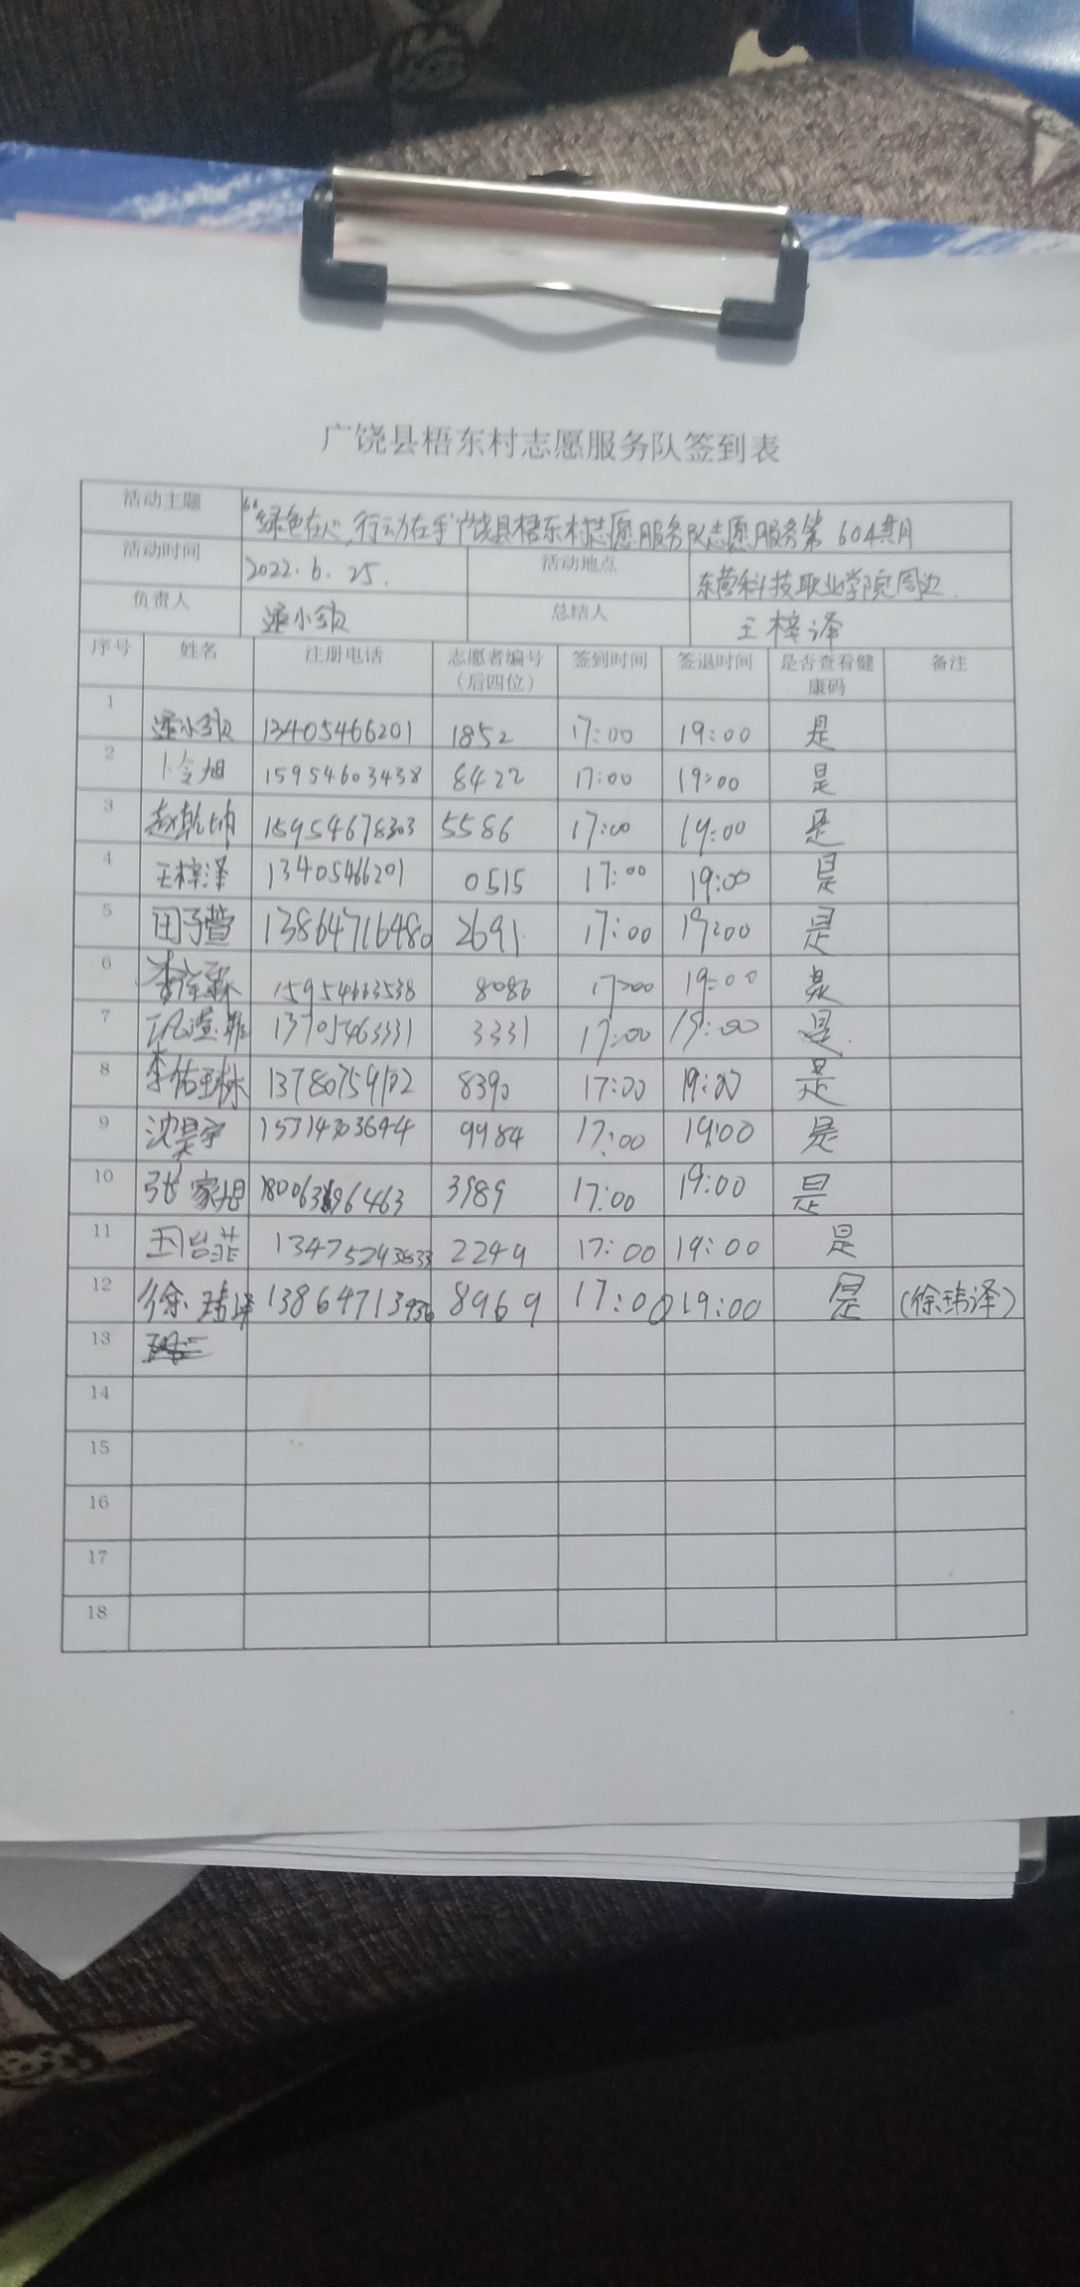 广饶县梧东村志愿服务队签到表
活动主题 "绿色在心,行动在手"广饶县梧东村志愿服务队志愿服务第604期
活动时间 2022.6.25. 活动地点 东营科技职业学院周边.
负责人 小 总结人 王梓泽
序号 姓名 注册电话 志愿者编号（后四位） 签到时间 签退时间 是否查看健康码 备注
1 小 13405466201 1852 17:00 19:00 是
2 旭 15954603438 8422 17:00 19:00 是
3 赵乾坤 15954678303 5586 17:00 19:00 是
4 王梓泽 13405466201 0515 17:00 19:00 是
5 田子萱 13864716480 2691 17:00 19:00 是
6 李 15954663538 8086 17:00 19:00 是
7 13705463331 3331 17:00 19:00 是
8 李佑琳 13780759102 8390 17:00 19:00 是
9 沈昊宇 15314303644 9984 17:00 19:00 是
10 张家旭 3989 17:00 19:00 是
11 2249 17:00 19:00 是
12 徐玮泽 13864713936 8969 17:00 19:00 是 (徐玮泽)
13
14
15
16
17
18